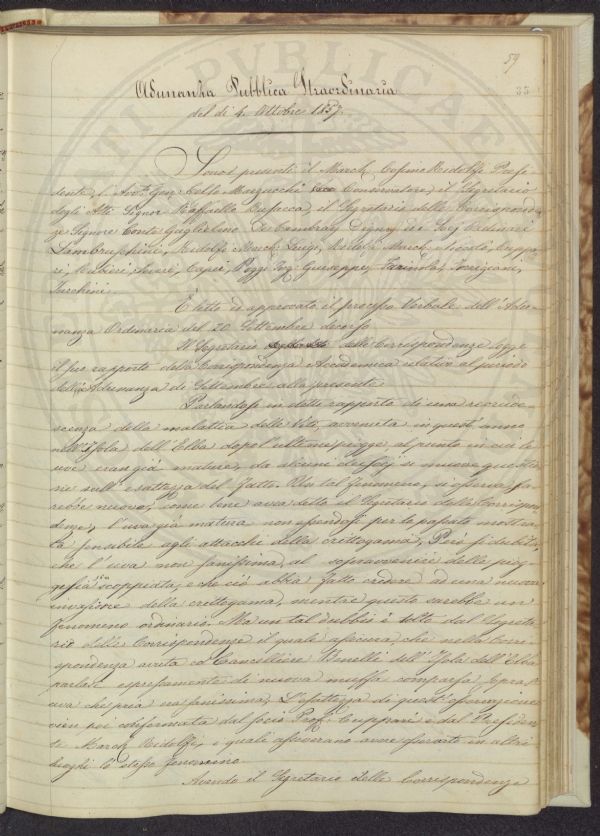 59
33
Adunanza Pubblica Straordinaria
del dì 4. Ottobre 1857.
Sono presenti il March. Cosimo Ridolfi Presi-
dente, l'Avv. Gen. Celso Marzucchi Conservatore, il Segretario
degli Atti Signor Raffaello Busacca, il Segretario delle Corrisponden-
ze Signore Conte Guglielmo De Cambray Digny ed i Socj Ordinari
Lambruschini, Ridolfi March. Luigi, Ridolfi March. Niccolò, Cuppa-
ri, Rubieri, Chiari, Capei, Poggi Giuseppe, Torrigiani,
Zucchini.
È letto ed approvato il processo Verbale dell'Adu-
nanza Ordinaria del 20 Settembre decorso.
Il Segretario delle Corrispondenze legge
il suo rapporto della Corrispondenza Accademica relativa al periodo
dell'Adunanza di Settembre alla presente.
Parlandosi in detto rapporto di una recrude-
scenza della malattia delle Viti, avvenuta in quest'anno
nell'Isola dell'Elba dopo l'ultime piogge al punto in cui le
uve eran già mature, da alcuni dei Socj si muove questio-
ne sull'esattezza del fatto. Un tal fenomeno, si osserva, sa-
rebbe nuovo, come bene avea detto il Segretario delle Corrispon-
denze, l'uva già matura non essendosi per lo passato mostra-
ta sensibile agli attacchi della crittogama; Però si dubita
che l'uva non sanissima al sopravvenire delle piog-
ge sia scoppiata, e che ciò abbia fatto credere ad una nuova
invasione della crittogama, mentre questo sarebbe un
fenomeno ordinario. Ma un tal dubbio è tolto dal Segreta-
rio delle Corrispondenze il quale assicura, che nella Corri-
spondenza avuta col Cancelliere Benelli dell'Isola dell'Elba
parlasi espressamente di nuova muffa comparsa sopra l'
uva che pria era sanissima. L'esattezza di quest'osservazione
vien poi confermata dal socio Prof. Cuppari e dal Presiden-
te March. Ridolfi, i quali assicurano avere osservato in altri
luoghi lo stesso fenomeno.
Avendo il Segretario delle Corrispondenze